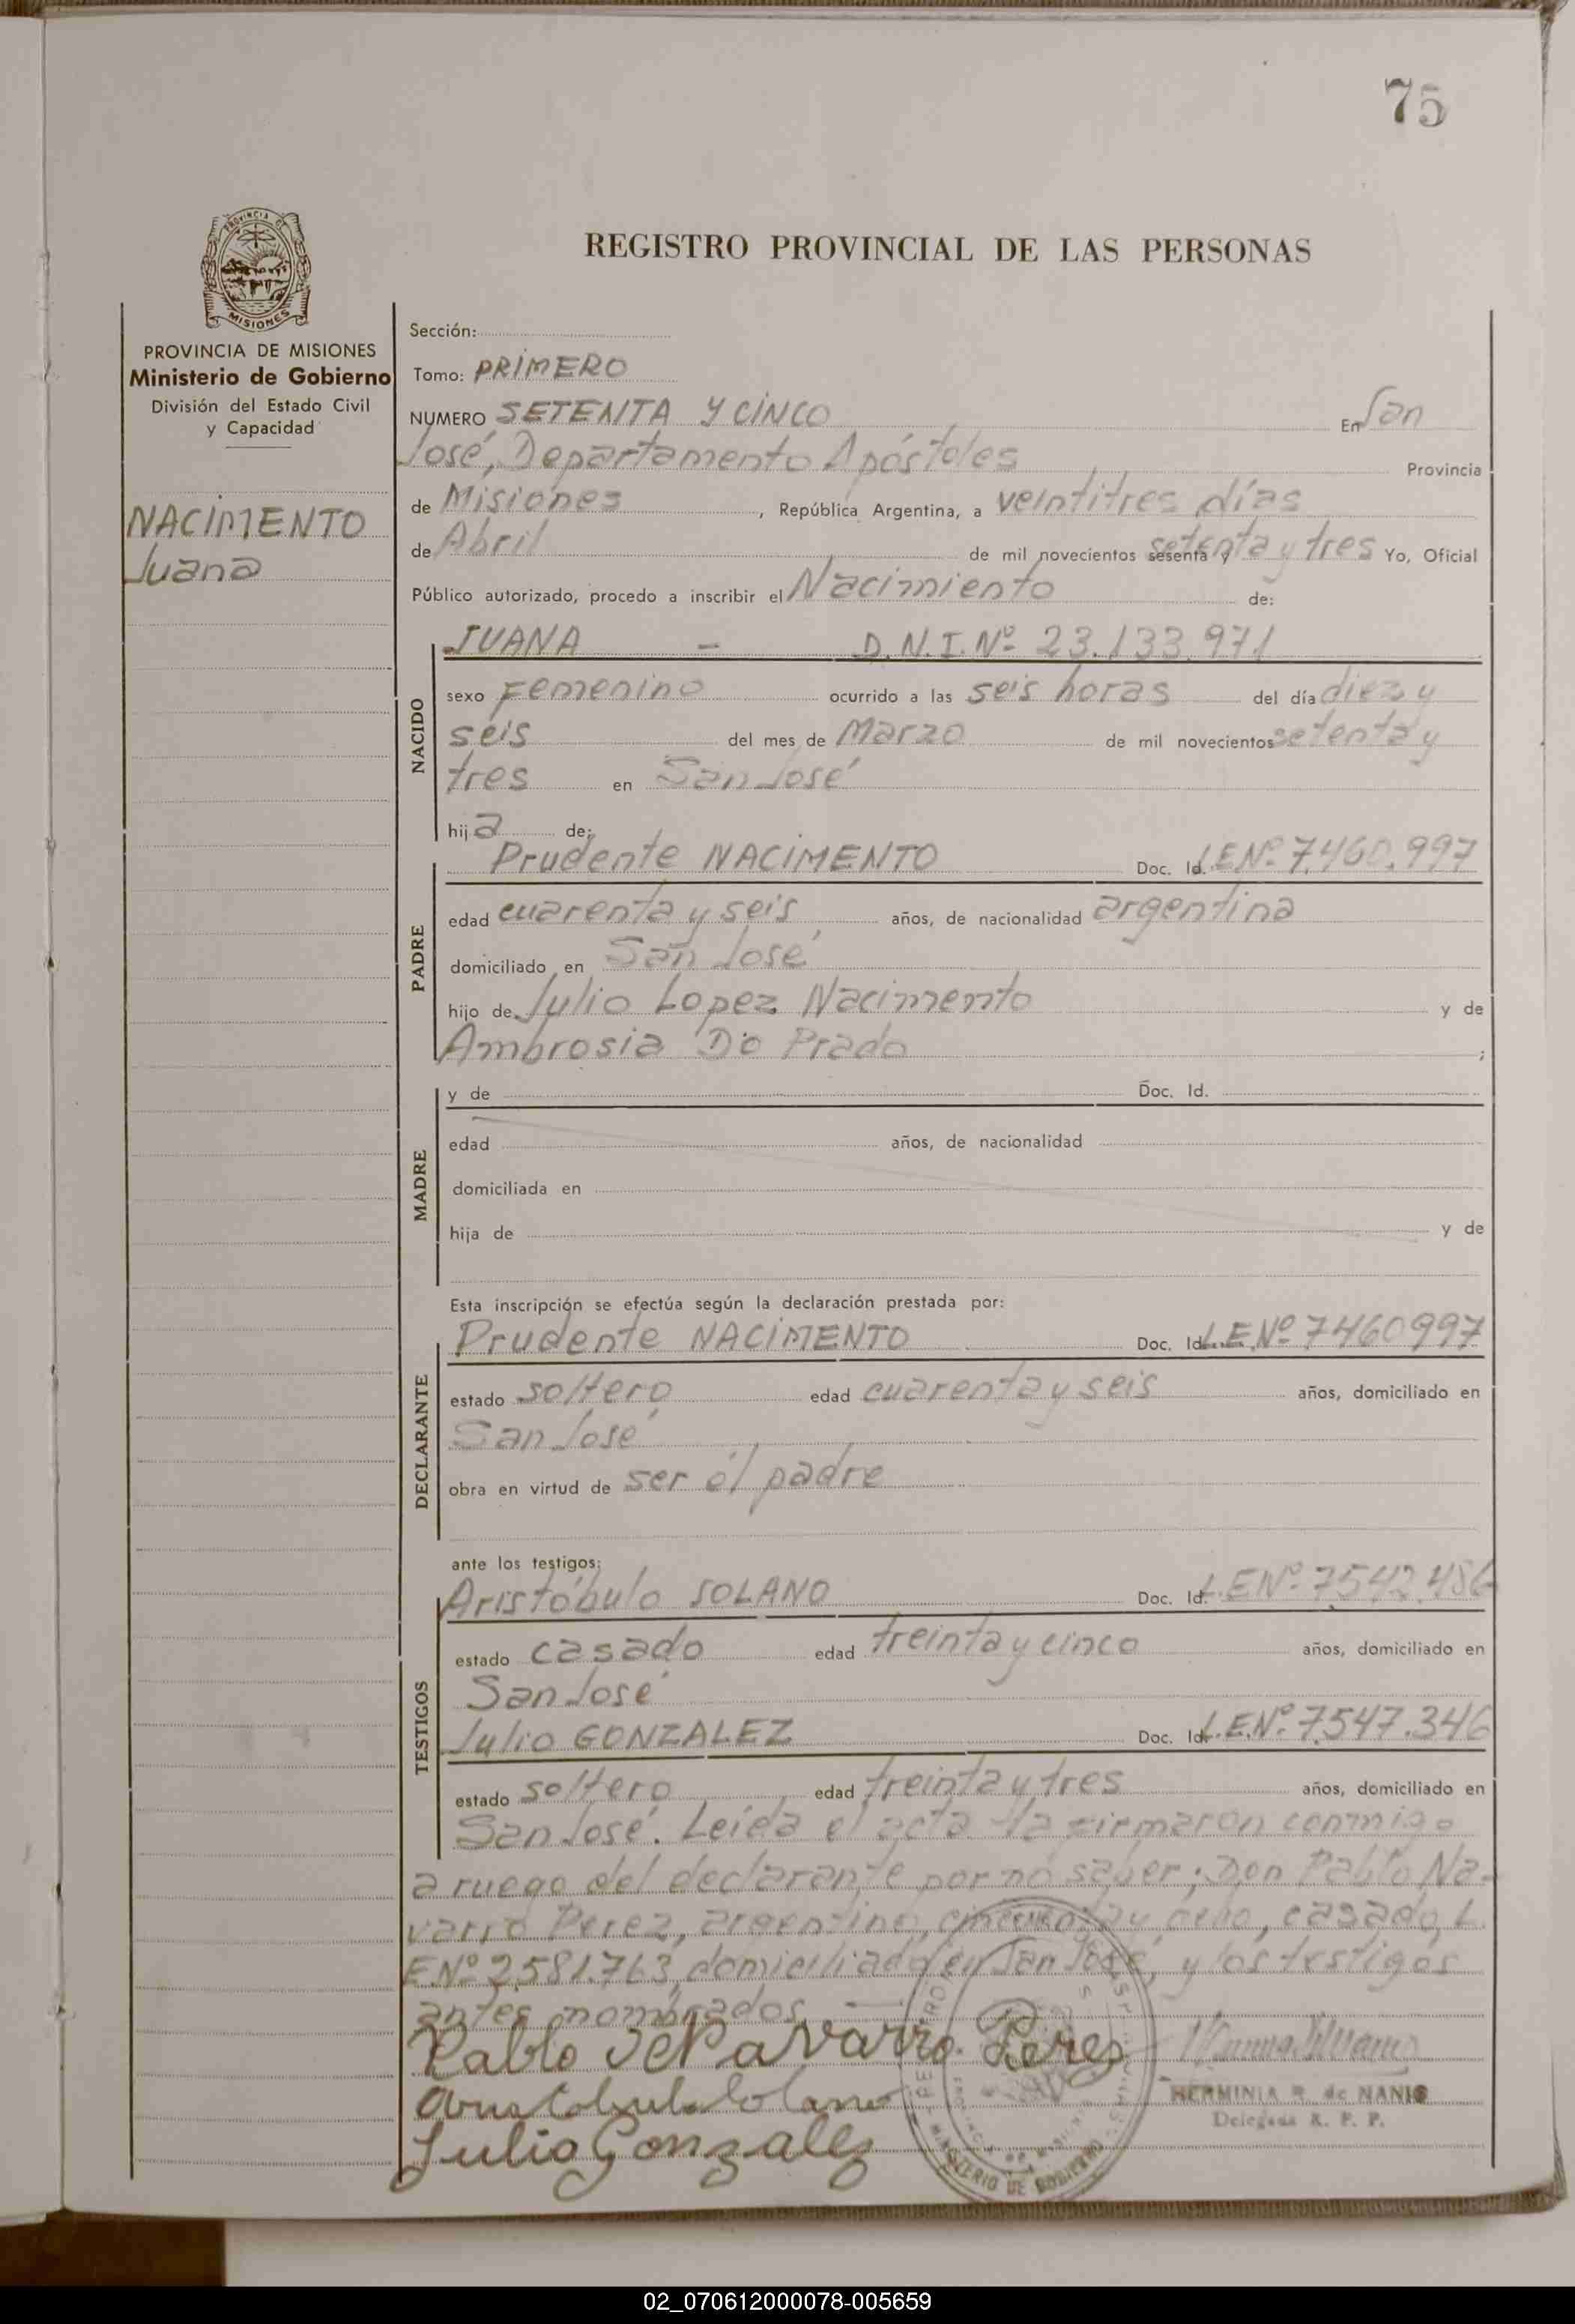 75
REGISTRO PROVINCIAL DE LAS PERSONAS
PROVINCIA DE
MISIONES
PROVINCIA DE MISIONES
Ministerio de Gobierno
División del Estado Civil
y Capacidad
NACIMENTO
Juana
Sección:
Tomo: PRIMERO
NUMERO SETENTA Y CINCO En San
José, Departamento Apóstoles Provincia
de Misiones, República Argentina, a veintitres días
de Abril de mil novecientos sesenta y setenta y tres Yo, Oficial
Público autorizado, procedo a inscribir el Nacimiento de:
NACIDO
JUANA - D.N.I. Nº 23.133.971
sexo Femenino ocurrido a las seis horas del día diez y
seis del mes de Marzo de mil novecientos setenta y
tres en San José
hija de:
PADRE
Prudente NACIMENTO Doc. Id. L.E.Nº 7.460.997
edad cuarenta y seis años, de nacionalidad argentina
domiciliado en San José
hijo de Julio Lopez Nacimento y de
Ambrosia Do Prado ;
MADRE
y de Doc. Id.
edad años, de nacionalidad
domiciliada en
hija de y de
Esta inscripción se efectúa según la declaración prestada por:
DECLARANTE
Prudente NACIMENTO Doc. Id. L.E.Nº 7460997
estado soltero edad cuarenta y seis años, domiciliado en
San José
obra en virtud de ser el padre
ante los testigos:
TESTIGOS
Aristóbulo SOLANO Doc. Id. L.E.Nº 7.542.486
estado casado edad treinta y cinco años, domiciliado en
San José
Julio GONZALEZ Doc. Id. L.E.Nº 7.547.346
estado soltero edad treinta y tres años, domiciliado en
San José. Leída el acta la firmaron conmigo
a ruego del declarante por no saber; Don Pablo Na-
varro Perez, argentino, cincuenta y ocho, casado, L.
E.Nº 2.581.763, domiciliado en San José, y los testigos
antes nombrados.
Pablo Navarro Perez
Aristobulo Solano
Julio Gonzalez
HERMINIA R. de NANIS
Delegada R. P. P.
MINISTERIO DE GOBIERNO
02_070612000078-005659